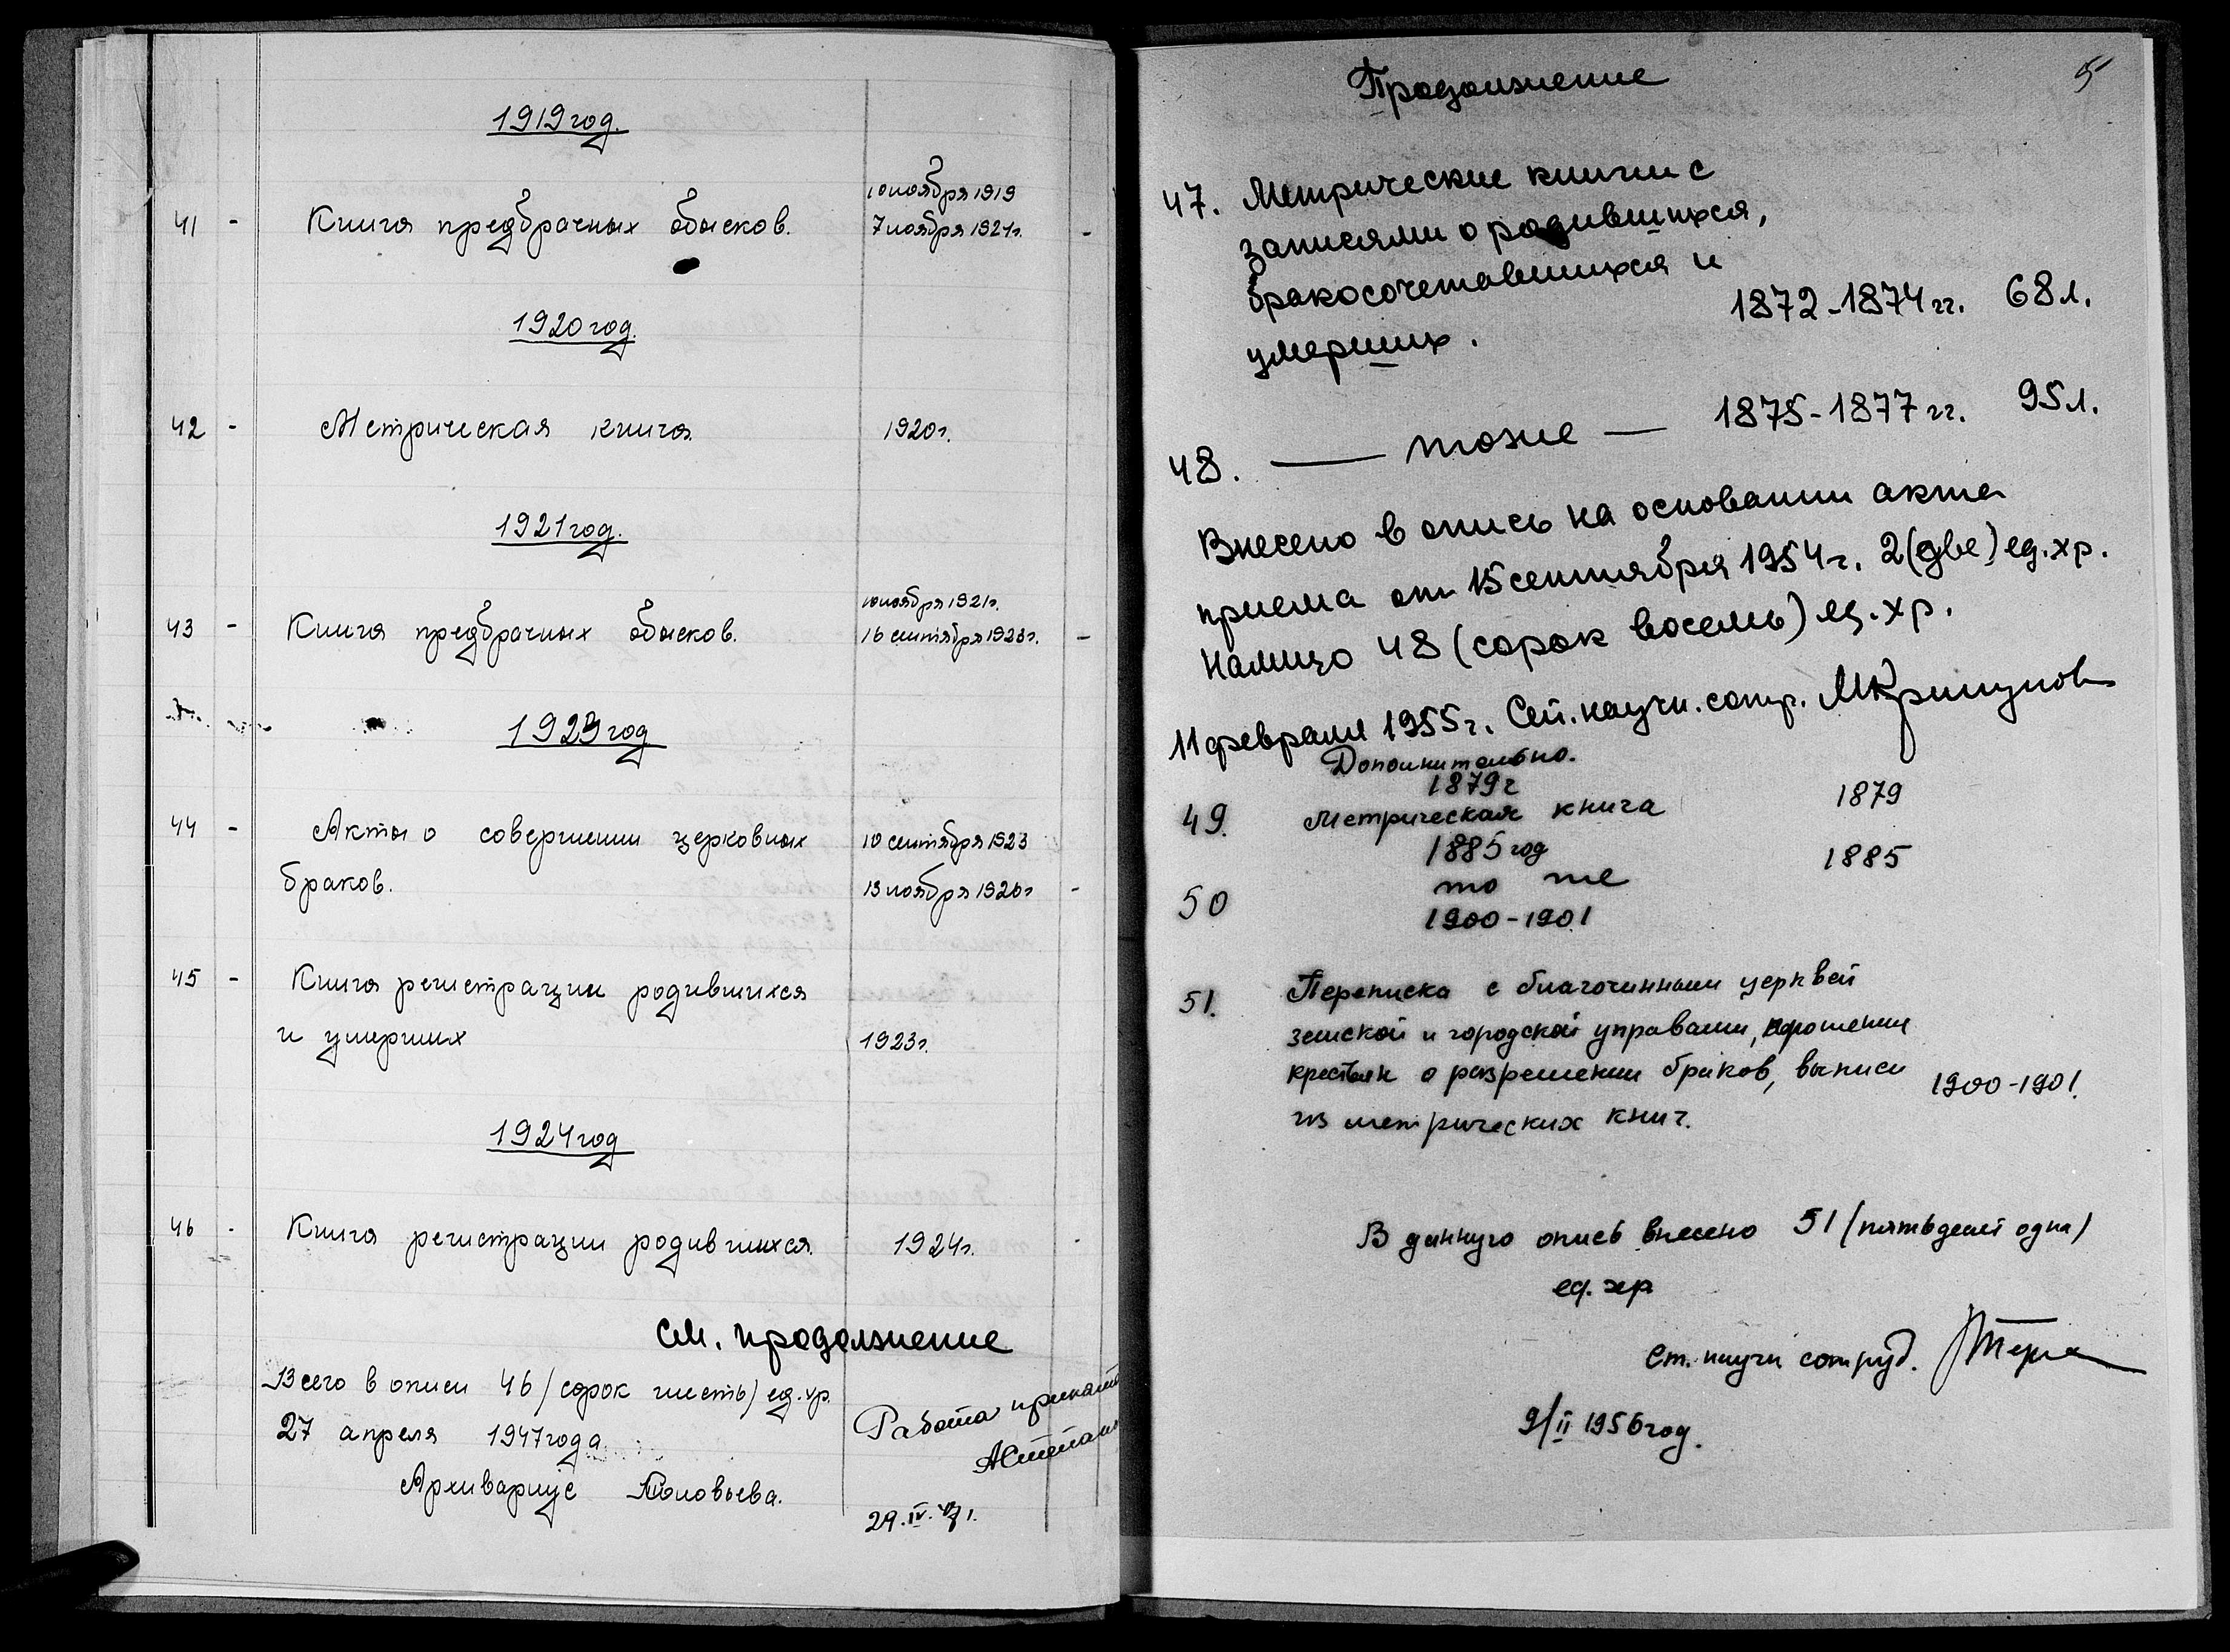 1919 год.
10 ноября 1919
41 - Книга предбрачных обысков. 7 ноября 1921г. -
1920 год.
42 - Метрическая книга. 1920г.
1921 год.
10 ноября 1921г.
43 - Книга предбрачных обысков. 16 сентября 1923г. -
1923 год
44 - Акты о совершении церковных 10 сентября 1923
браков. 13 ноября 1926г -
45 - Книга регистрации родившихся
и умерших 1923г.
1924 год
46 - Книга регистрации родившихся. 1924г. -
См. продолжение
Всего в описи 46 /сорок шесть/ ед.хр.
27 апреля 1947 года
Архивариус
Работа
29.IV.47г.
5
Продолжение
47. Метрические книги с
записями о родившихся,
бракосочетавшихся и
умерших. 1872-1874 гг. 68 л.
48. — тоже — 1875-1877 гг. 95 л.
Внесено в опись на основании акта
приема от 15 сентября 1954 г. 2 (две) ед.хр.
Налицо 48 (сорок восемь) ед.хр.
11 февраля 1955 г. Ст. научн. сотр.
Дополнительно.
1879 г
49. Метрическая книга 1879
1885 год
50 то же 1885
1900-1901
51. Переписка с благочинными церквей
земской и городской управами, прошения
крестьян о разрешении браков, выписи
из метрических книг. 1900-1901.
В данную опись внесено 51 (пятьдесят одна)
ед. хр
Ст. научн сотруд.
9/II 1956 год.